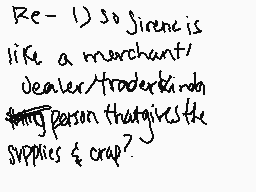 Re- 1) so Sirenc is
like a merchant/
dealer/trader kinda
person that gives the
supplies & crap?